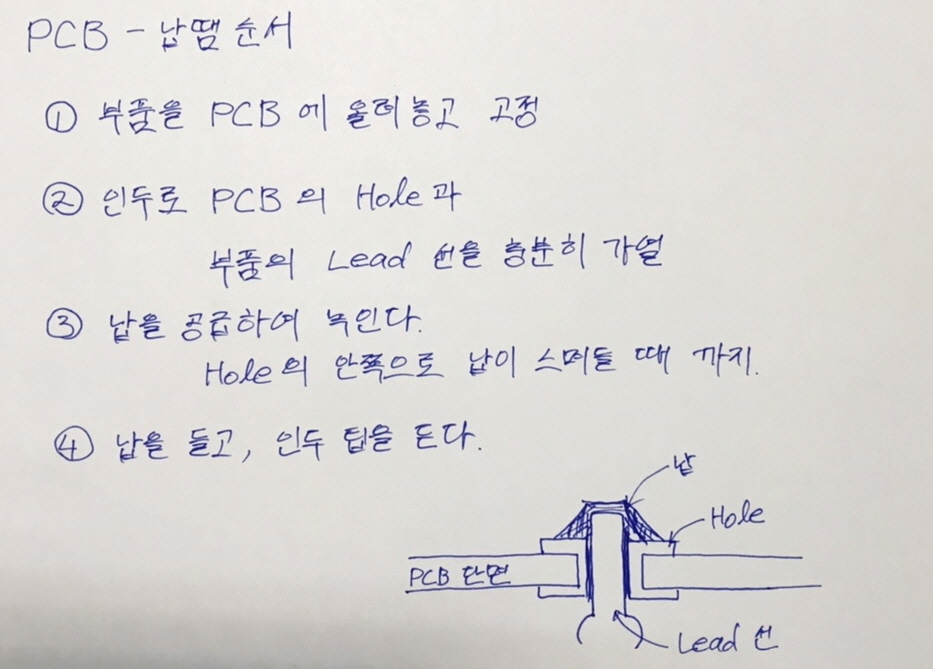 PCB - 납땜 순서
① 부품을 PCB에 올려놓고 고정
② 인두로 PCB의 Hole과
부품의 Lead 선을 충분히 가열
③ 납을 공급하여 녹인다.
Hole의 안쪽으로 납이 스며들 때 까지.
④ 납을 들고, 인두 팁을 든다.
납
Hole
PCB 단면
Lead 선